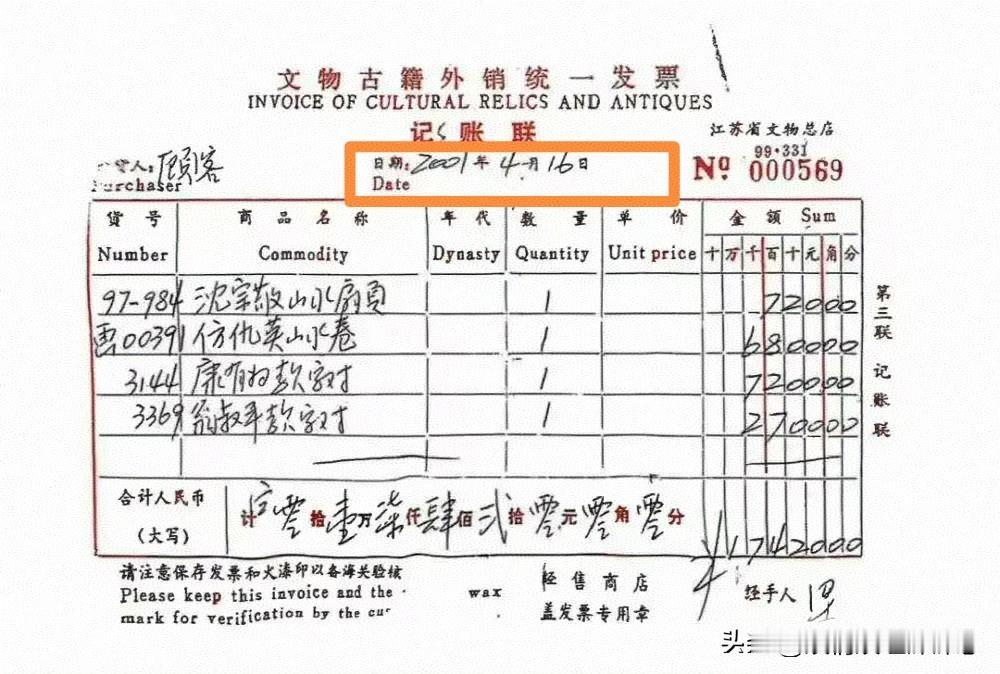 文物古籍外销统一发票
INVOICE OF CULTURAL RELICS AND ANTIQUES
记账联
江苏省文物总店
99·331
Nº 000569
货人：顾客
Purchaser
日期：2001年4月16日
Date
货号 商品名称 年代 数量 单价 金额 Sum
Number Commodity Dynasty Quantity Unit price 十万千百十元角分
97-984 沈宗敬山水扇页 1 72000
画00391 仿仇英山水卷 1 680000
3144 康有为款字对 1 720000
3369 翁叔平款字对 1 270000
合计人民币 计零拾壹万柒仟肆佰贰拾零元零角零分 ¥1742000
（大写）
第三联 记账联
请注意保存发票和火漆印以备海关验核
Please keep this invoice and the wax
mark for verification by the cus
经售商店
盖发票专用章
经手人
头条